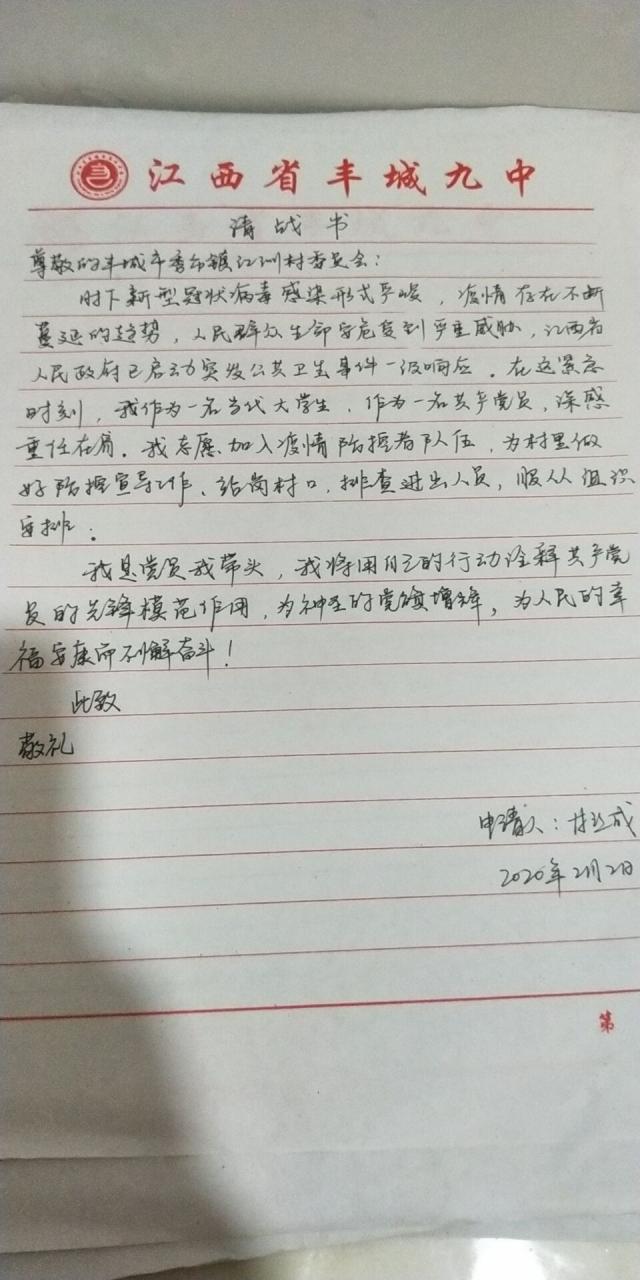 江西省丰城九中
请战书
尊敬的丰城市秀市镇江洲村委员会：
时下新型冠状病毒感染形式严峻，疫情存在不断
蔓延的趋势，人民群众生命安危受到严重威胁，江西省
人民政府已启动突发公共卫生事件一级响应。在这紧急
时刻，我作为一名当代大学生，作为一名共产党员，深感
重任在肩。我志愿加入疫情防控者队伍，为村里做
好防控宣导工作、站岗村口，排查进出人员，服从组织
安排。
我是党员我带头，我将用自己的行动诠释共产党
员的先锋模范作用，为神圣的党旗增辉，为人民的幸
福安康而不懈奋斗！
此致
敬礼
申请人：
2020年2月2日
第